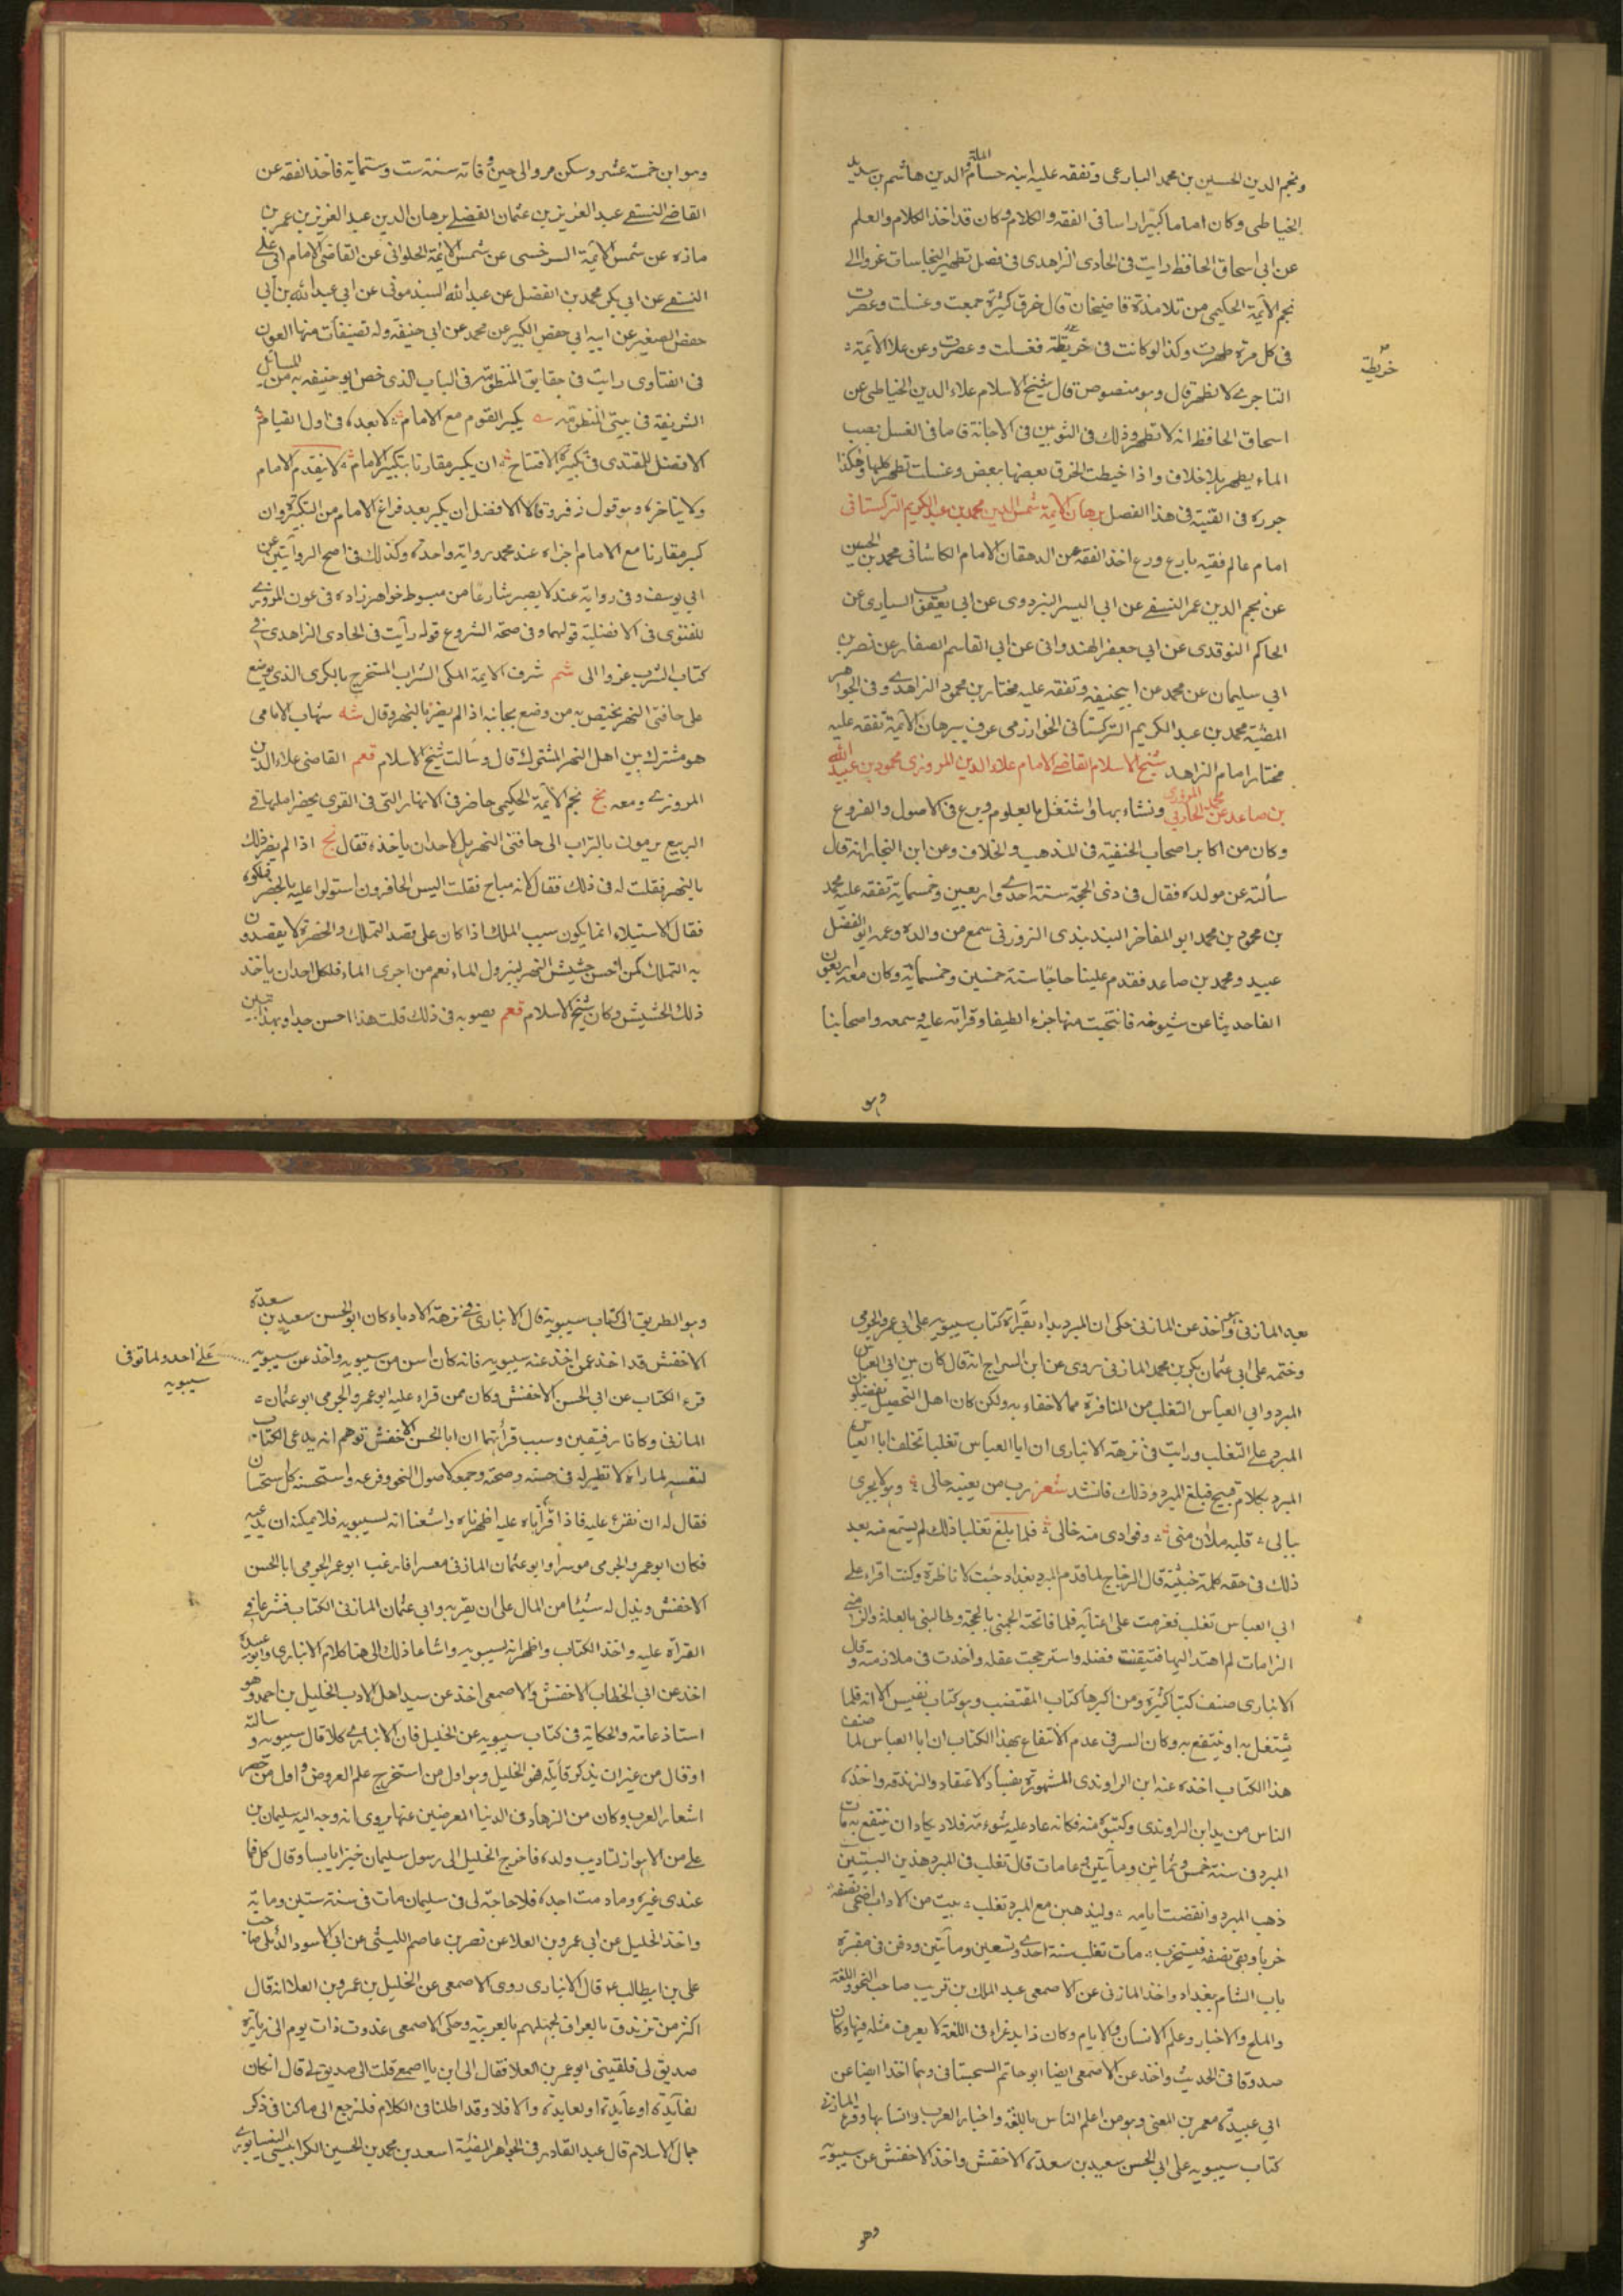 ونجم الدين الحسين بن محمد البارعى وتفقه عليه ابنه حسام الملة والدين هاشم بن سديد
الخياطى وكان اماما كبيرا راسا فى الفقه والكلام وكان قد اخذ الكلام والعلم
عن ابى اسحاق الحافظ رايت فى الحاوى الزاهدى فى فصل تطهير النجاسات عزوا الى
نجم الائمة الحكيمى من تلامذة قاضيخان قال خرق كثيرة جمعت وغسلت وعصرت
فى كل مرة طهرت وكذا لو كانت فى خريطة فغسلت وعصرت وعن علا الائمة
خريطة
التاجرى لا تطهر قال وهو منصوص قال شيخ الاسلام علاء الدين الخياطى عن
اسحاق الحافظ انه لا تطهر وذلك فى الثوبين فى الاجانة فاما فى الغسل بصب
الماء يطهر بلا خلاف واذا خيطت الخرق بعضها ببعض وغسلت تطهر كلها وهكذا
جرره فى القنية فى هذا الفصل برهان الائمة شمس الدين محمد بن عبد الكريم التركستانى
امام عالم فقيه بارع ورع اخذ الفقه عن الدهقان الامام الكاشانى محمد بن الحسين
عن نجم الدين عمر النسفى عن ابى اليسر البزدوى عن ابى يعقوب السيارى عن
الحاكم النوقدى عن ابى جعفر الهندوانى عن ابى القاسم الصفار عن نصر بن
ابى سليمان عن محمد عن ابيحنيفه وتفقه عليه مختار بن محمود الزاهدى وفى الجواهر
المضئية محمد بن عبد الكريم التركستانى الخوارزمى عرف ببرهان الائمة تفقه عليه
مختار امام الزاهد شيخ الاسلام القاضى الامام علاء الدين المروزى محمود بن عبيد الله
بن صاعد بن محمد الحارثى المروزى ونشاء بها واشتغل بالعلوم وبرع فى الاصول والفروع
وكان من اكابر اصحاب الحنفية فى المذهب والخلاف وعن ابن النجار انه قال
سألته عن مولده فقال فى ذى الحجة سنة احدى واربعين وخمسماية تفقه عليه محمد
بن محمود بن محمد ابو المفاخر السديدى الزوزنى سمع من والده وعمه ابو الفضل
عبيد ومحمد بن صاعد فقدم علينا حاجا سنة خمسين وخمسماية وكان معه اربعون
الفا حديثا عن شيوخه فانتخبت منها جزءا لطيفا وقرأته عليه وسمعه واصحابنا
وهو
وهو ابن خمسة عشر وسكن مرو الى حين وفاته سنة ست وستماية فاخذ الفقه عن
القاضى النسفى عبد العزيز بن عثمان الفضلى برهان الدين عبد العزيز بن عمر بن
مازه عن شمس الائمة السرخسى عن شمس الائمة الحلوانى عن القاضى الامام ابى على
النسفى عن ابى بكر محمد بن الفضل عن عبد الله السبذمونى عن ابى عبد الله بن ابى
حفص الصغير عن ابيه ابى حفص الكبير عن محمد عن ابى حنيفه وله تصنيفات منها العون
فى الفتاوى رايت فى حقايق المنظومة فى الباب الذى خص ابو حنيفه به من المسائل
الشريفة فى بيتى المنظومة يكبر القوم مع الامام لا بعده فى اول القيام
الافضل للمقتدى فى تكبيرة الافتتاح ان يكبر مقارنا بتكبير الامام لا يتقدم الامام
ولا يتاخره وهو قول زفر وقالا الافضل ان يكبر بعد فراغ الامام من التكبير وان
كبر مقارنا مع الامام اجزاه عند محمد رواية واحدة وكذلك فى اصح الروايتين عن
ابى يوسف وفى رواية عنه لا يصير شارعا من مبسوط خواهر زاده فى عون المروزى
للفتوى فى الافضلية قولهما وفى صحة الشروع قوله رأيت فى الحاوى الزاهدى فى
كتاب الشرب عزوا الى شم شرف الائمة المكى التراب المستخرج بالكرى الذى يوضع
على حافتى النهر يختص به من وضع بجانبه اذا لم يضر بالنهر وقال شه شهاب الامامى
هو مشترك بين اهل النهر المشترك قال وسألت شيخ الاسلام قعم القاضى علاء الدين
المروزى ومعه نج نجم الائمة الحكيمى حاضر فى الانهار التى فى القرى يحضر املها فى
الربيع يرمون بالتراب الى حافتى النهر هل لاحد ان ياخذه فقال نج اذا لم يضر ذلك
بالنهر فقلت له فى ذلك فقال لانه مباح فقلت اليس الحافرون استولوا عليه بالحفر فملكوه
فقال الاستيلاء انما يكون سبب الملك اذا كان على قصد التملك والحفرة لا يقصدون
به التملك كمن احسن حشيش النهر لينزول الماء نعم من اجرى الماء فلكل احد ان ياخذ
ذلك الحشيش وكان شيخ الاسلام قعم يصوبه فى ذلك قلت هذا احسن جدا وبهذا تبين
بعد المازنى واخذ عن المازنى حكى ان المبرد بداء بقرأة كتاب سيبويه على ابى عمر والجرمى
وختمه على ابى عثمان بكر بن محمد المازنى روى عن ابن السراج انه قال كان بين ابى العباس
المبرد وابى العباس التغلب من المنافرة مما لا خفاء به ولكن كان اهل التحصيل يفضلون
المبرد على التغلب ورايت فى نزهة الانبارى ان ابا العباس تغلبا تخلف ابا العباس
المبرد بكلام قبيح فبلغ المبرد وذلك فانشد شعر رب من يعينه حالى وهو لا يجرى
ببالى قلبه ملان منى وفوادى منه خالى فلما بلغ تغلبا ذلك لم يسمع منه بعد
ذلك فى حقه كلمة خبيثة قال الزجاج لما قدم المبرد بغداد جئت لا ناظره وكنت اقراء على
ابى العباس تغلب فعزمت على اعناته فلما فاتحته الجمنى بالحجة وطالبنى بالعلة والزمنى
الزامات لم اهتد اليها فتيقنت فضله واسترجحت عقله واخذت فى ملازمته وقال
الانبارى صنف كتبا كثيرة ومن اكبرها كتاب المقتضب وهو كتاب نفيس الا انه قلما
يشتغل به او ينتفع به وكان السر فى عدم الانتفاع بهذا الكتاب ان ابا العباس لما صنف
هذا الكتاب اخذه عنه ابن الراوندى المشهورة بفساد الاعتقاد والزندقه واخذه
الناس من يد ابن الراوندى وكتبوه منه فكانه عاد عليه شوءمه فلا يكاد ان ينتفع به مات
المبرد فى سنة خمس وثمانين ومأيتين ولما مات قال تغلب فى المبرد هذين البيتين
ذهب المبرد وانقضت ايامه وليذهبن مع المبرد تغلب بيت من الاداب اضحى نصفه
خربا وبقى نصفه فستخرب مات تغلب سنة احدى وتسعين ومأتين ودفن فى مقبرة
باب الشام ببغداد واخذ المازنى عن الاصمعى عبد الملك بن قريب صاحب النحو واللغة
والملح والاخبار وعلم الانسان والايام وكان ذا يد غراء فى اللغة لا يعرف مثله فيها وكان
صدوقا فى الحديث واخذ عن الاصمعى ايضا ابو حاتم السجستانى وهما اخذا ايضا عن
ابى عبيدة معمر بن المعنى وهو من اعلم الناس باللغة واخبار العرب وانسابها وقرء المازنى
كتاب سيبويه على ابى الحسن سعيد بن سعدة الاخفش واخذ الاخفش عن سيبويه
وهو
وهو الطريق الى كتاب سيبويه قال الانبارى فى نزهة الادباء كان ابو الحسن سعيد بن سعدة
الاخفش قد اخذ عمن اخذ عنه سيبويه فانه كان اسن من سيبويه واخذ عن سيبويه
على احد ولما توفى
سيبويه
قرء الكتاب عن ابى الحسن الاخفش وكان ممن قراء عليه ابو عمر والجرمى ابو عثمان
المازنى وكانا رفيقين وسبب قرأتهما ان ابا الحسن الاخفش توهم انه يدعى الكتاب
لنفسه لما راه لا نظير له فى حسنه وصحته وجمعه لاصول النحو وفرعه واستحسنه كل استحسان
فقال له ان نقرء عليه فاذا قرأناه عليه اظهرناه واشعنا انه لسيبويه فلا يمكنه ان يدعيه
فكان ابو عمر والجرمى موسرا وابو عثمان المازنى معسرا فارغب ابو عمر الجرمى ابا الحسن
الاخفش وبذل له شيئا من المال على ان يقريه وابى عثمان المازنى الكتاب فشرعا فى
القرأة عليه واخذ الكتاب واظهر انه لسيبويه واشاعا ذلك الى هنا كلام الانبارى وابو عبيدة
اخذ عن ابى الخطاب الاخفش والاصمعى اخذ عن سيد اهل الادب الخليل بن احمد وهو
استاذ عامة والحكاية فى كتاب سيبويه عن الخليل فان الانبارى كلا قال سيبويه وسالته
او قال من غير ان يذكر قايله فهو الخليل وهو اول من استخرج علم العروض واول من حصر
اشعار العرب وكان من الزهاد فى الدنيا المعرضين عنها يروى انه وجه اليه سليمان بن
على من الاهواز لتاديب ولده فاخرج الخليل الى رسول سليمان خبزا يابسا وقال كل فما
عندى غيره وما دمت اجده فلا حاجة لى فى سليمان مات فى سنة ستين وماية
واخذ الخليل عن ابى عمرو بن العلا عن نصر بن عاصم الليثى عن ابى الاسود الدئلى صاحب
على بن ابيطالب قال الانبارى روى الاصمعى عن الخليل بن عمرو بن العلا انه قال
اكثر من تزندق بالعراق لجهلهم بالعربية وحكى الاصمعى غدوت ذات يوم الى زيارة
صديق لى فلقينى ابو عمر بن العلا فقال الى اين يا اصمعى قلت الى صديق لى قال ان كان
لفائدة او عائدة او لعايدة والا فلا وقد اطلنا فى الكلام فلنرجع الى ما كنا فى ذكر
جمال الاسلام قال عبد القادر فى الجواهر المضئية اسعد بن محمد بن الحسين الكرابيسى النيسابورى